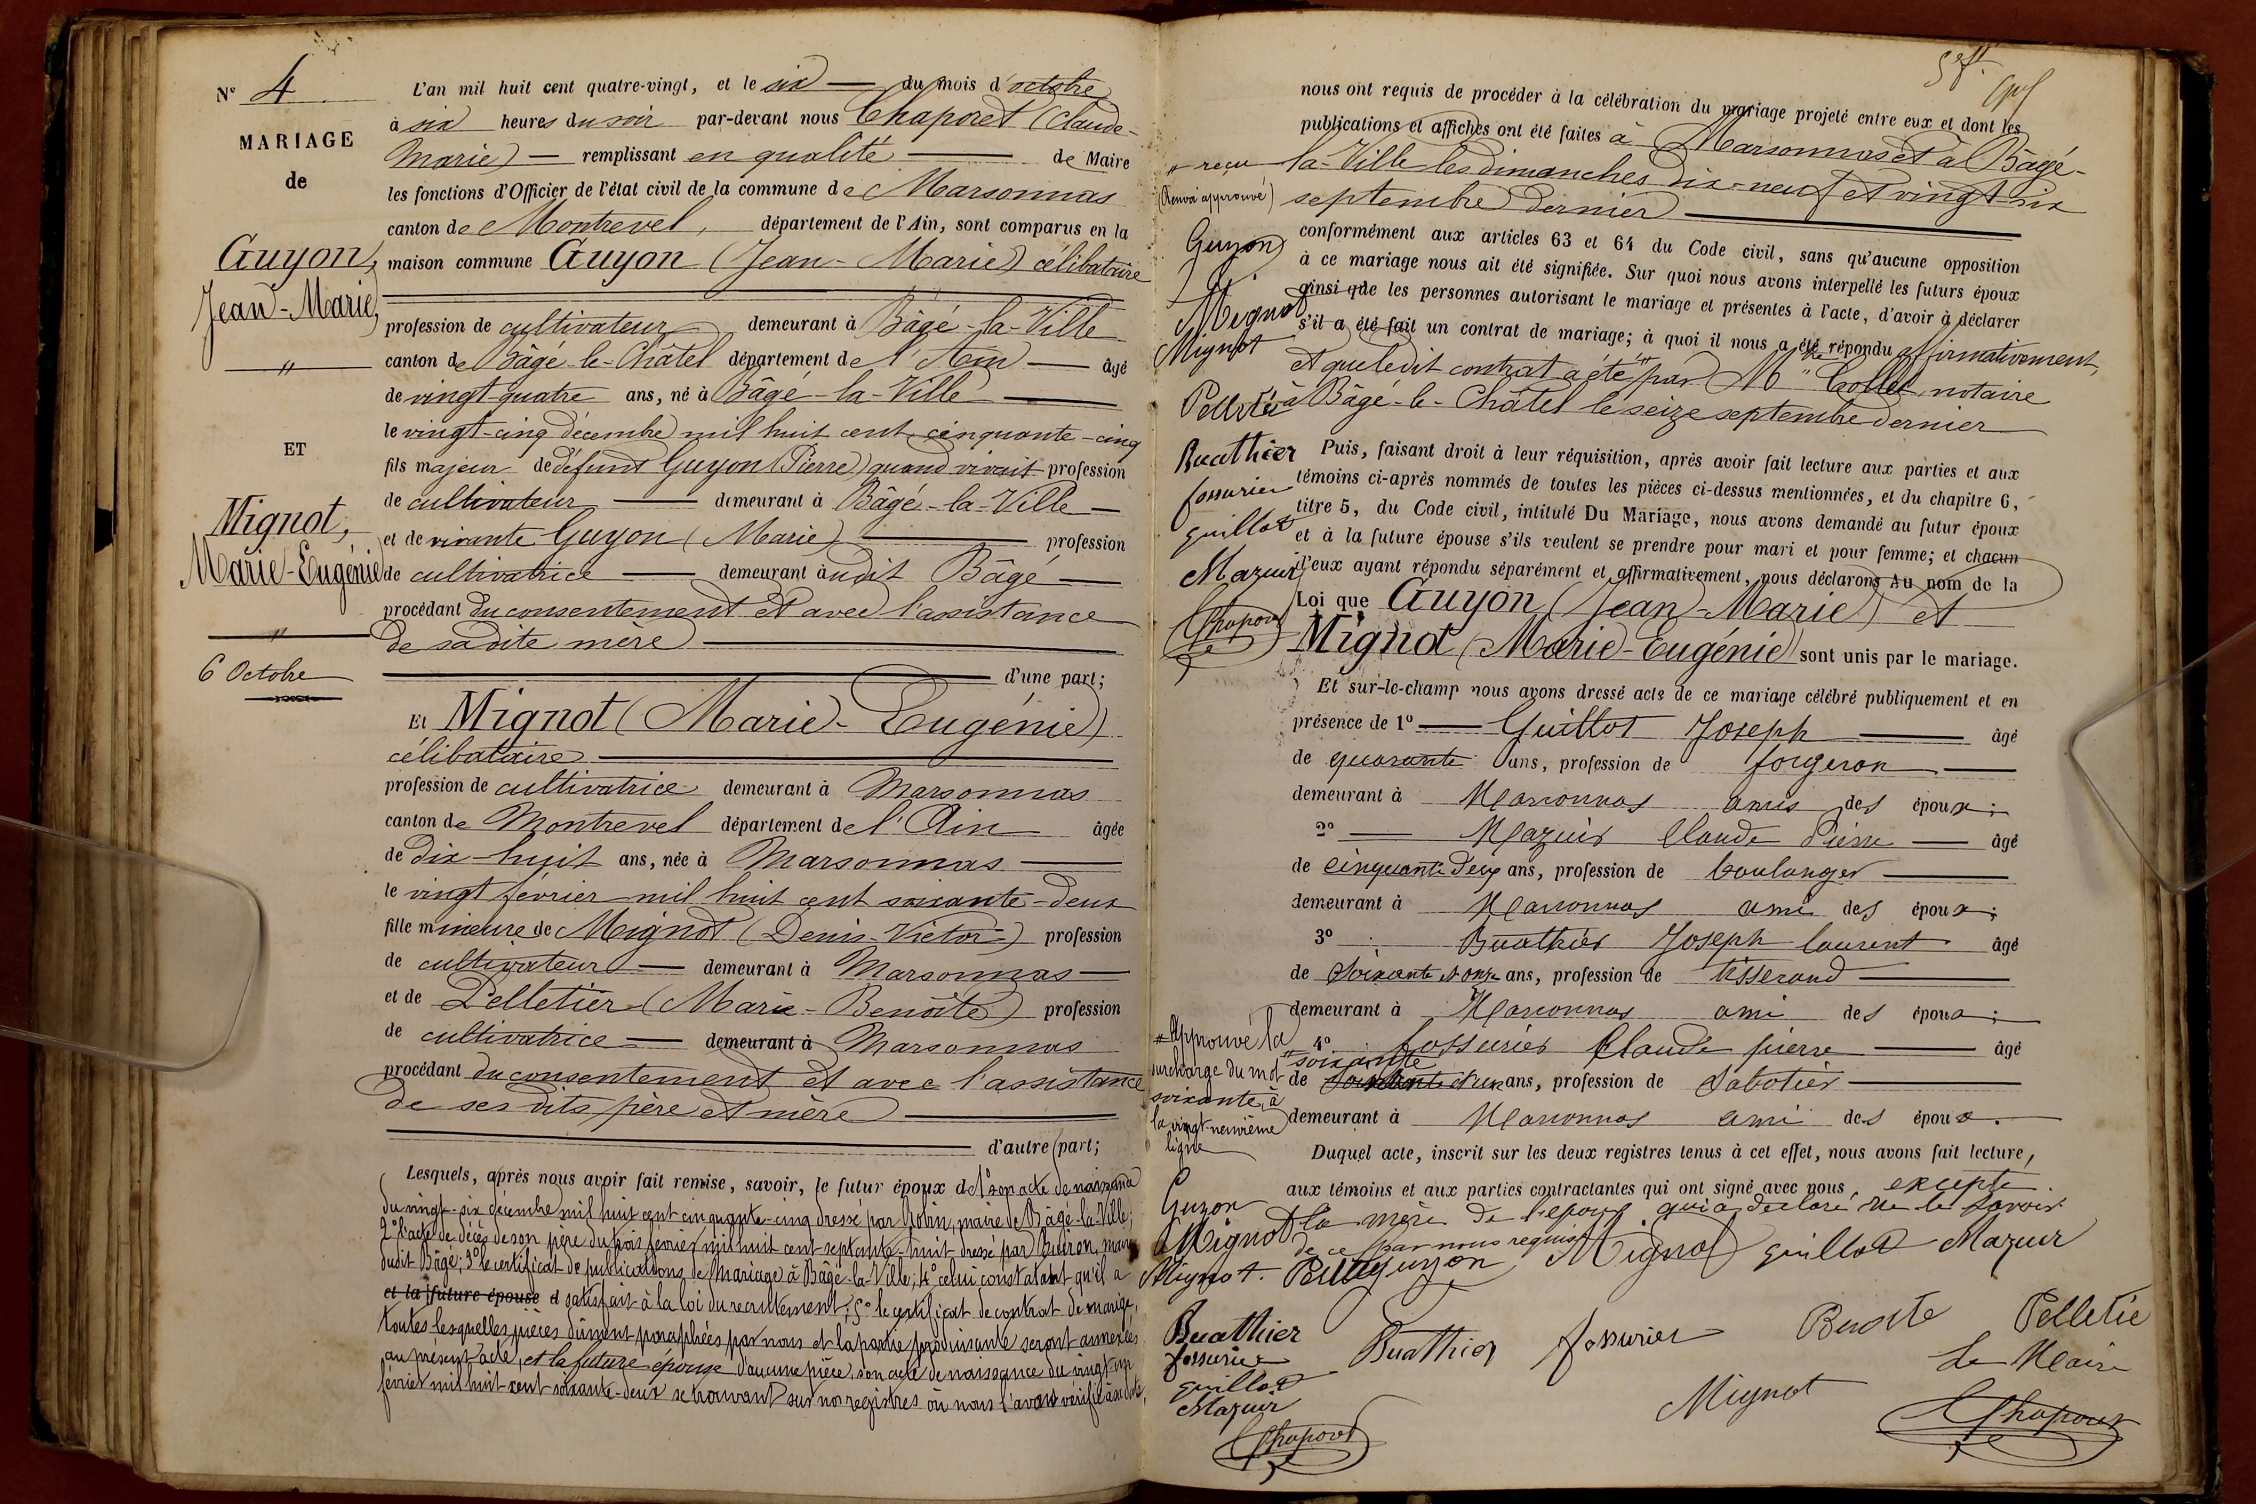 N° 4
MARIAGE
de
Guyon,
Jean-Marie,
"
ET
Mignot,
Marie-Eugénie
"
6 Octobre
L'an mil huit cent quatre-vingt, et le six du mois d'octobre
à six heures du soir par-devant nous Chaporet (Claude-
Marie) remplissant en qualité de Maire
les fonctions d'Officier de l'état civil de la commune de Marsonnas
canton de Montrevel, département de l'Ain, sont comparus en la
maison commune Guyon (Jean-Marie) célibataire
profession de cultivateur demeurant à Bâgé-la-Ville
canton de Bâgé-le-Châtel département de l'Ain âgé
de vingt-quatre ans, né à Bâgé-la-Ville
le vingt-cinq décembre mil huit cent cinquante-cinq
fils majeur de défunt Guyon (Pierre) quand vivait profession
de cultivateur demeurant à Bâgé-la-Ville
et de vivante Guyon (Marie) profession
de cultivatrice demeurant àudit Bâgé
procédant du consentement et avec l'assistance
de sadite mère
d'une part;
Et Mignot (Marie-Eugénie)
célibataire
profession de cultivatrice demeurant à Marsonnas
canton de Montrevel département de l'Ain âgée
de dix-huit ans, née à Marsonnas
le vingt février mil huit cent soixante-deux
fille mineure de Mignot (Denis-Victor) profession
de cultivateur demeurant à Marsonnas
et de Pelletier (Marie-Benoîte) profession
de cultivatrice demeurant à Marsonnas
procédant du consentement et avec l'assistance
de ses dits père et mère
d'autre part;
Lesquels, après nous avoir fait remise, savoir, le futur époux de 1° son acte de naissance
du vingt-six décembre mil huit cent cinquante-cinq dressé par Robin, maire de Bâgé-la-Ville;
2° l'acte de décès de son père du trois février mil huit cent septante-huit dressé par Buiron, maire
dudit Bâgé; 3° le certificat de publications de mariage à Bâgé-la-Ville; 4° celui constatant qu'il a
et la future épouse d satisfait à la loi du recrutement; 5° le certificat de contrat de mariage,
toutes lesquelles pièces dûment paraphées par nous et la partie produisante seront annexées
au présent acte, et la future épouse d'aucune pièce, son acte de naissance du vingt-un
février mil huit cent soixante-deux se trouvant sur nos registres où nous l'avons vérifié à sa date,
nous ont requis de procéder à la célébration du mariage projeté entre eux et dont les
publications et affiches ont été faites à Marsonnas et à Bâgé-
la-Ville les dimanches dix-neuf et vingt-six
septembre dernier
conformément aux articles 63 et 64 du Code civil, sans qu'aucune opposition
à ce mariage nous ait été signifiée. Sur quoi nous avons interpellé les futurs époux
ainsi que les personnes autorisant le mariage et présentes à l'acte, d'avoir à déclarer
s'il a été fait un contrat de mariage; à quoi il nous a été répondu affirmativement,
et que ledit contrat a été " par Me Collet, notaire
à Bâgé-le-Châtel le seize septembre dernier
Puis, faisant droit à leur réquisition, après avoir fait lecture aux parties et aux
témoins ci-après nommés de toutes les pièces ci-dessus mentionnées, et du chapitre 6,
titre 5, du Code civil, intitulé Du Mariage, nous avons demandé au futur époux
et à la future épouse s'ils veulent se prendre pour mari et pour femme; et chacun
d'eux ayant répondu séparément et affirmativement, nous déclarons Au nom de la
Loi que Guyon (Jean-Marie) et
Mignot (Marie-Eugénie) sont unis par le mariage.
Et sur-le-champ nous avons dressé acte de ce mariage célébré publiquement et en
présence de 1° Guillot Joseph âgé
de quarante ans, profession de forgeron
demeurant à Marsonnas amis des époux;
2° Mazuir Claude Pierre âgé
de cinquante deux ans, profession de boulanger
demeurant à Marsonnas ami des époux;
3° Buathier Joseph laurent âgé
de soixante et onze ans, profession de tisserand
demeurant à Marsonnas ami des époux;
4° fossurier Claude pierre âgé
" soixante
de ans, profession de sabotier
demeurant à Marsonnas ami des époux.
Duquel acte, inscrit sur les deux registres tenus à cet effet, nous avons fait lecture,
aux témoins et aux parties contractantes qui ont signé avec nous, excepté
la mère de l'époux qui a déclaré ne le savoir
de ce par nous requise
Guyon Mignot guillot Mazuir
Buathier fossurier Benoite Pelletié
Le Maire
Mignot Chaporet
" reçu
(Renvoi approuvé)
Guyon
Mignot
Mignot
Pelletié
Buathier
fossurier
guillot
Mazuir
Chaporet
" Approuvé la
surcharge du mot
soixante, à
la vingt-neuvième
ligne
Guyon
Mignot
Mignot.
Buathier
fossurier
guillot
Mazuir
Chaporet